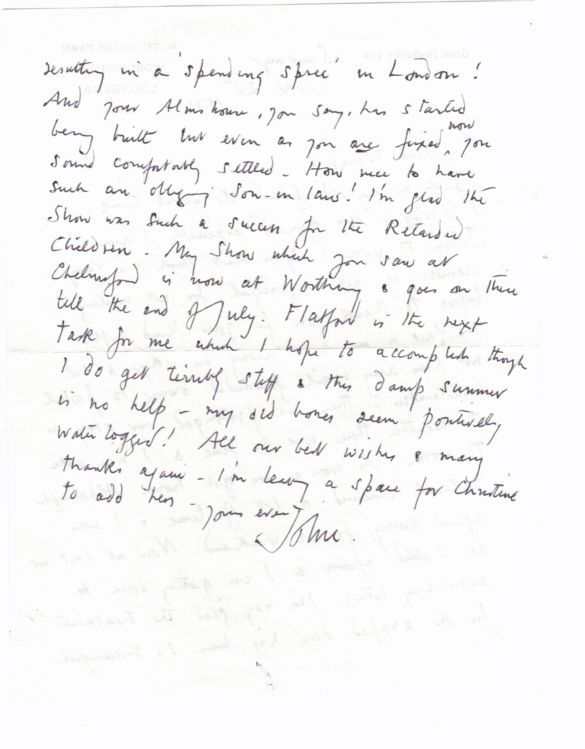 resulting in a 'spending spree' in London!
And your Almshouse, you say, has started
being built but even as you are fixed now, you
sound comfortably settled. How nice to have
such an obliging Son-in-law! I'm glad the
Show was such a success for the Retarded
Children. My Show which you saw at
Chelmsford is now at Worthing & goes on there
till the end of July. Flatford is the next
task for me which I hope to accomplish though
I do get terribly stiff & this damp summer
is no help – my old bones seem positively
water logged! All our best wishes & many
thanks again – I'm leaving a space for Christine
to add hers – yours ever
John.